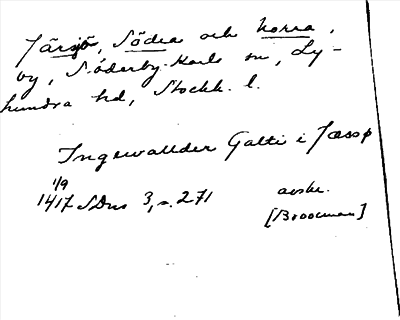 Järsjö, Södra och Norra,
by, Söderby-Karls sn, Ly-
hundra hd, Stockh. l.
Ingewallder Galti i Jæssø
1/9
1417 SDns 3, s. 271 avskr.
[Brocman]